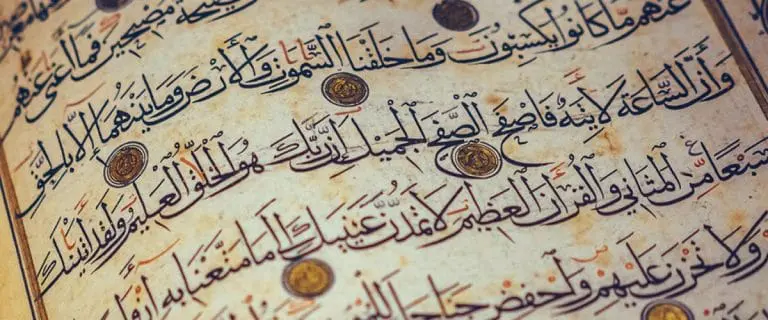 مصبحين فما أغنى
عنهم ما كانوا يكسبون وما خلقنا السموت والأرض وما بينهما إلا بالحق
وإن الساعة لآتية فاصفح الصفح الجميل إن ربك هو الخلق العليم ولقد آتينك
سبعا من المثاني والقرآن العظيم لا تمدن عينيك إلى ما متعنا به أزوا
ولا تحزن عليهم واخفض جناحك